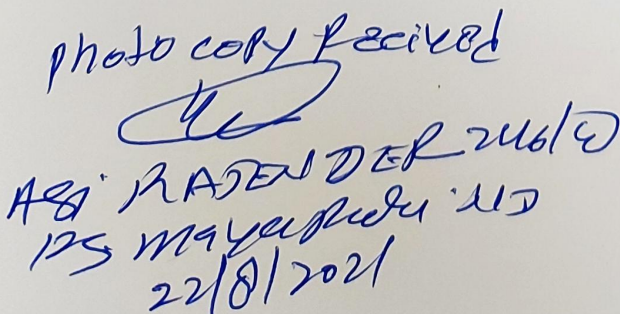 Photo copy Recived
ASI RAJENDER 246/W
PS Mayapuri ND
22/8/2021